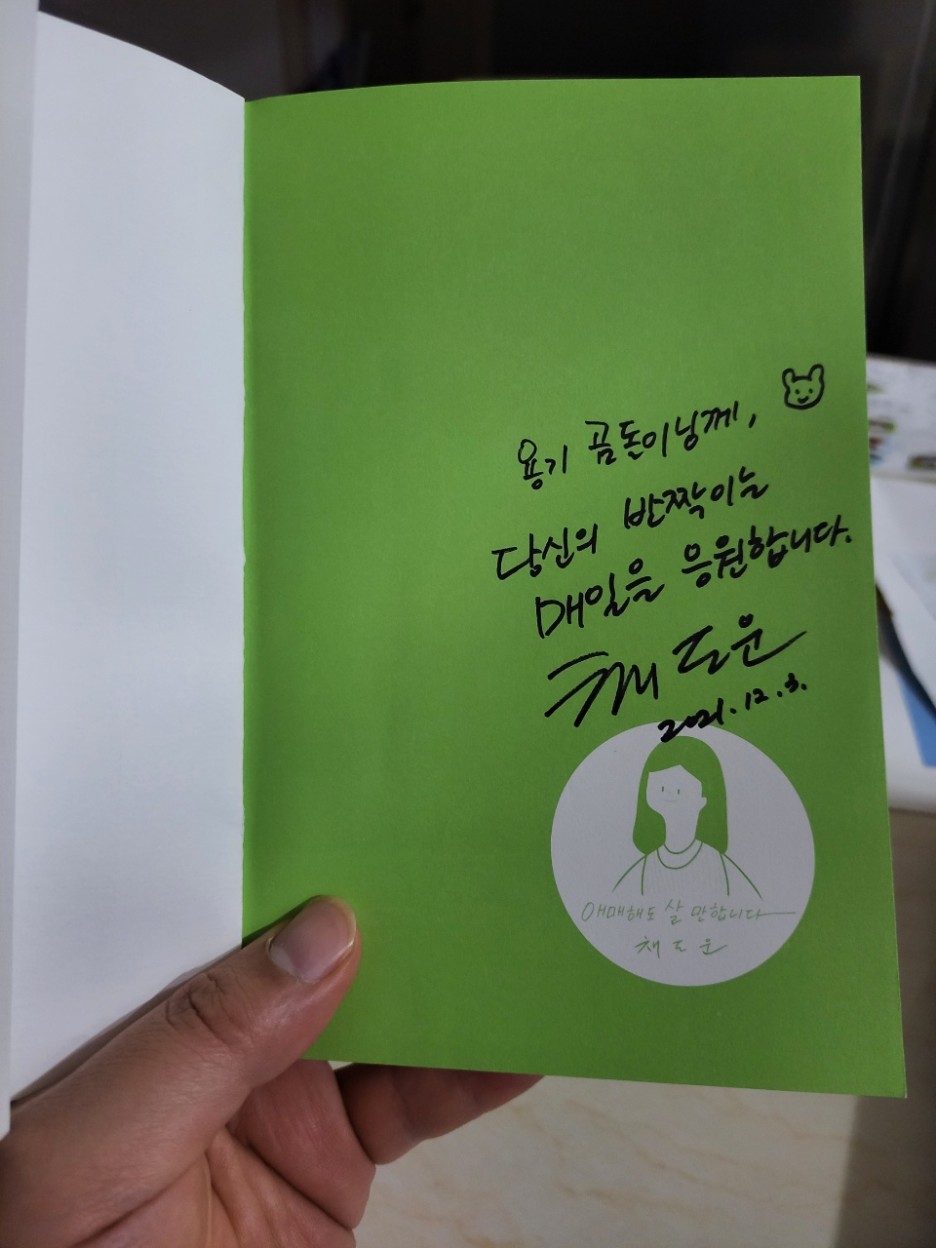 용기 곰돌이님께,
당신의 반짝이는
매일을 응원합니다.
채도운
2021.12.3.
애매해도 살 만합니다
채도운